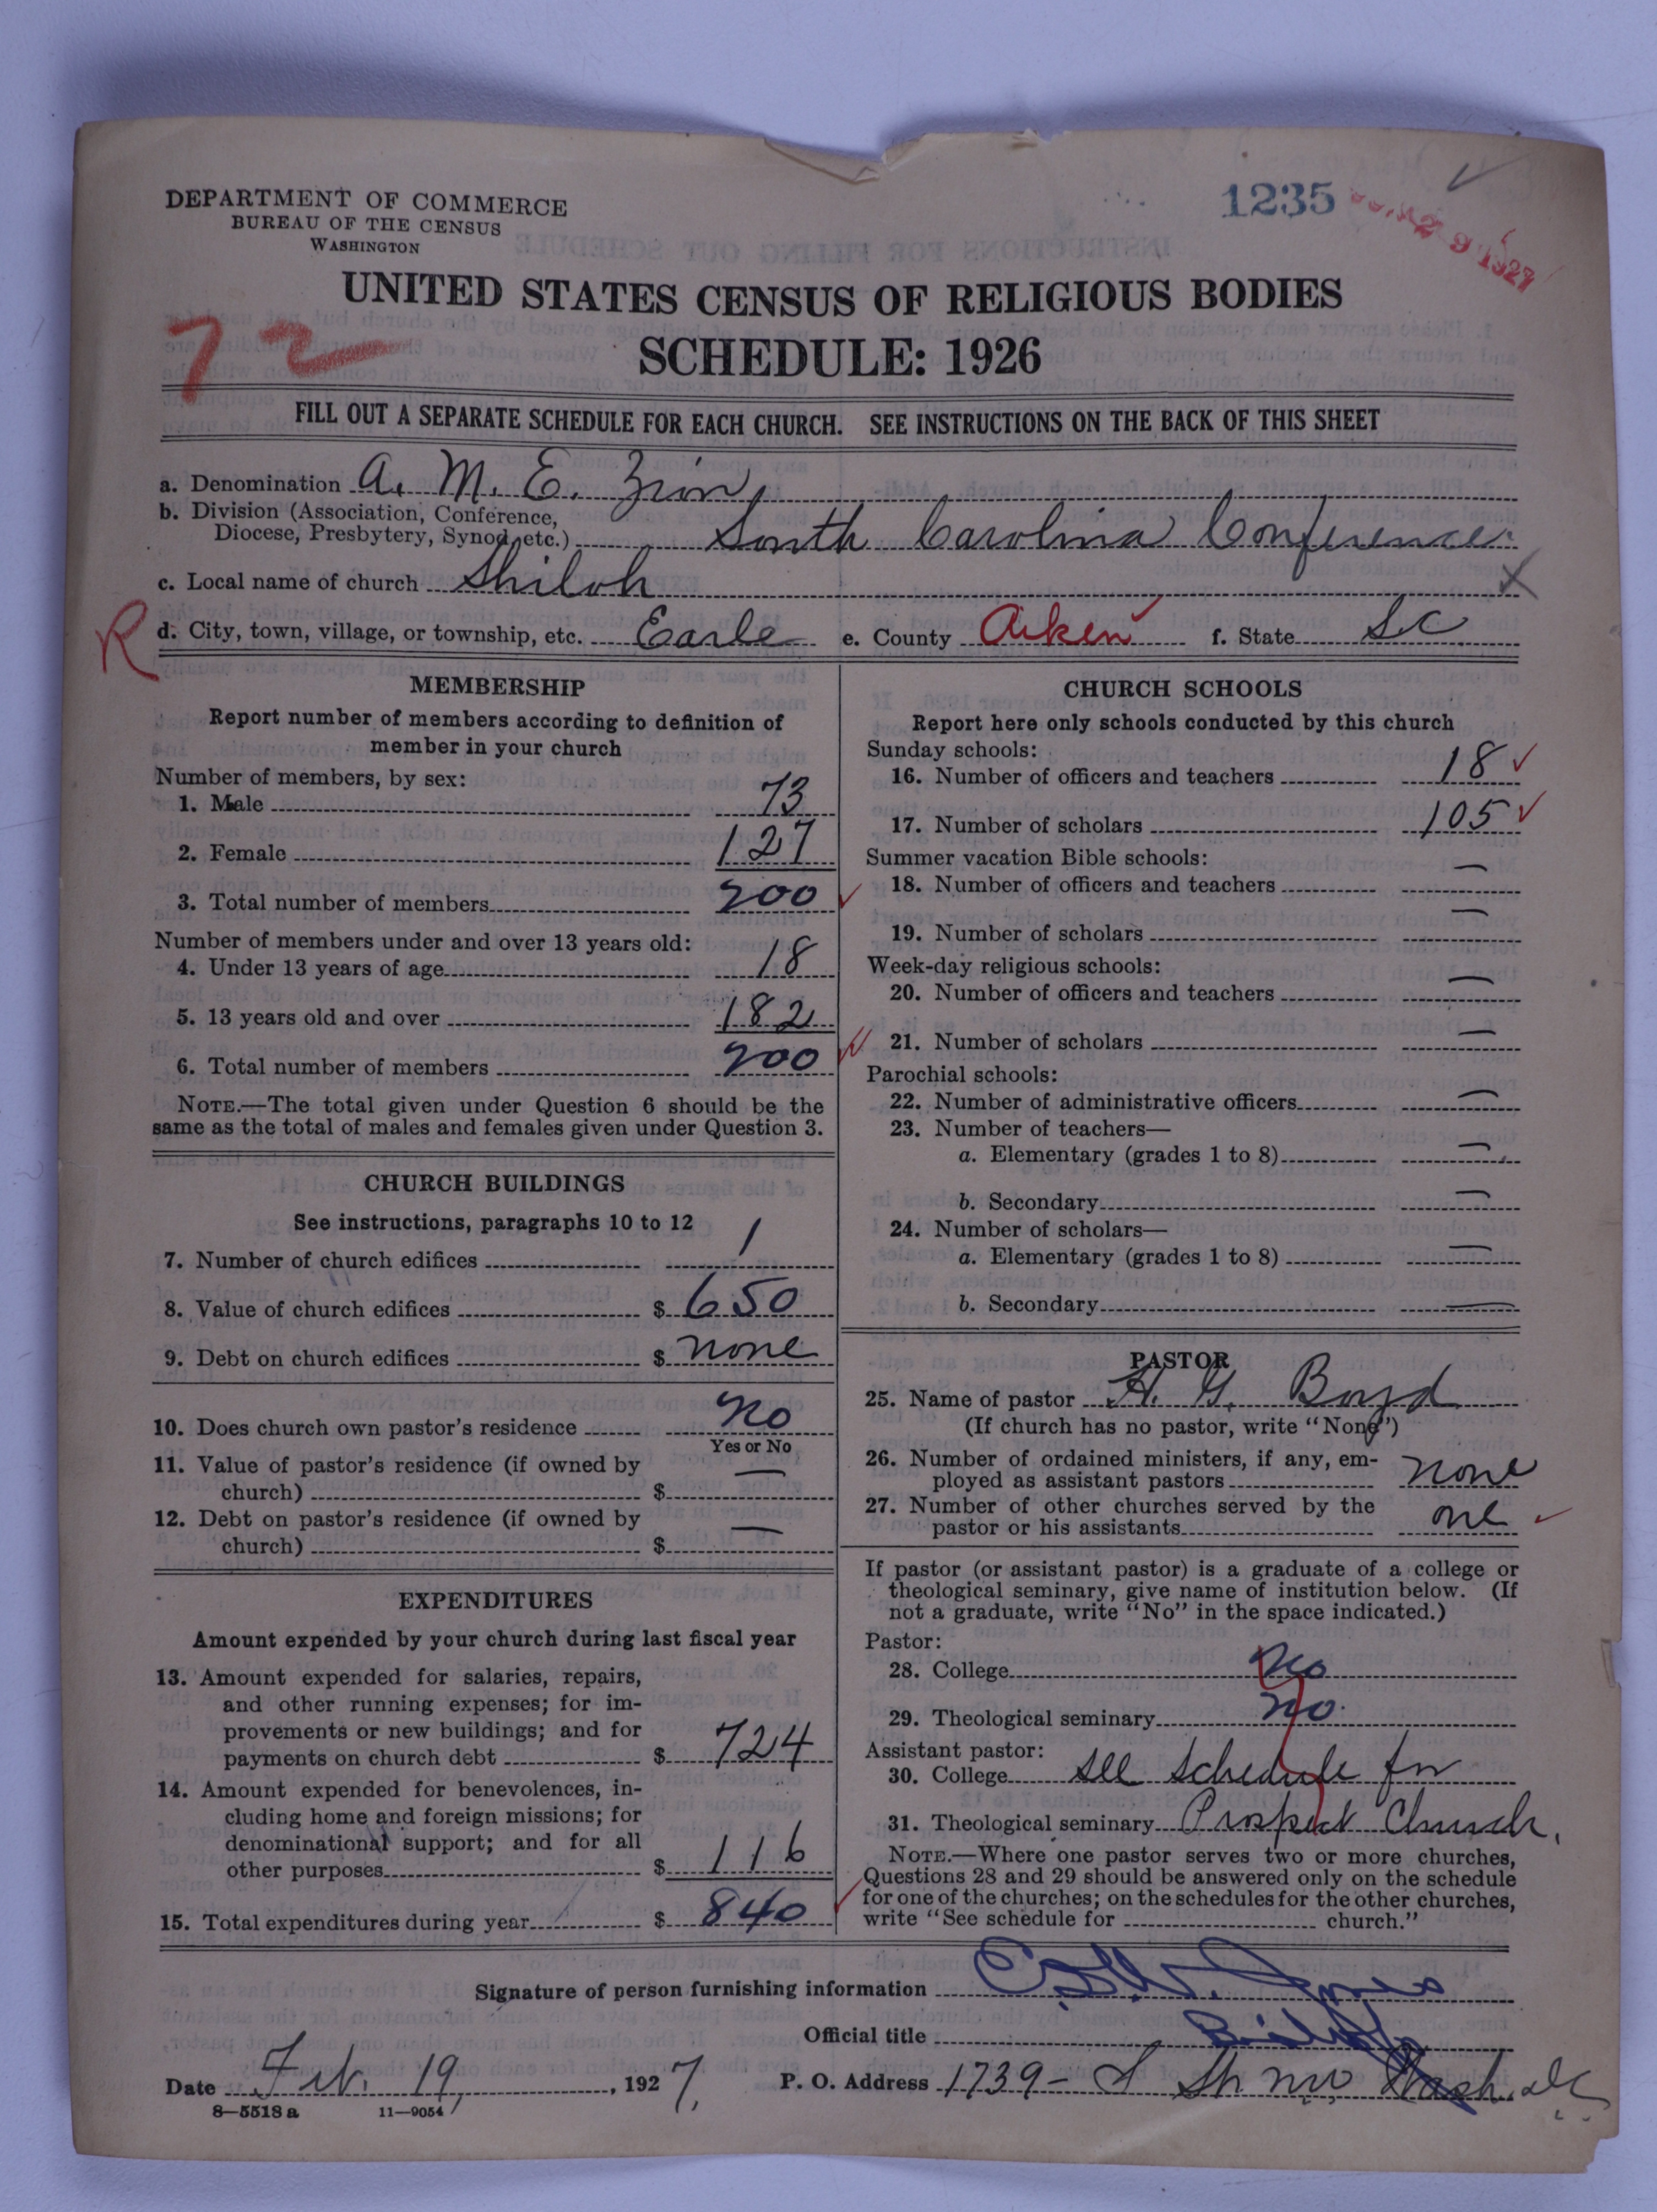 1235
DEPARTMENT OF COMMERCE
BUREAU OF THE CENSUS
WASHINGTON
UNITED STATES CENSUS OF RELIGIOUS BODIES
72
SCHEDULE: 1926
FILL OUT A SEPARATE SCHEDULE FOR EACH CHURCH. SEE INSTRUCTIONS ON THE BACK OF THIS SHEET
a. Denomination A. M. E. Zion
b. Division (Association, Conference,
Diocese, Presbytery, Synod, etc.) South Carolina Conference
c. Local name of church Shiloh X
R d. City, town, village, or township, etc. Earle e. County Aiken f. State S.C
MEMBERSHIP
Report number of members according to definition of
member in your church
Number of members, by sex:
1. Male 73
2. Female 127
3. Total number of members 200
Number of members under and over 13 years old:
4. Under 13 years of age 18
5. 13 years old and over 182
6. Total number of members 200
NOTE.—The total given under Question 6 should be the
same as the total of males and females given under Question 3.
CHURCH BUILDINGS
See instructions, paragraphs 10 to 12
7. Number of church edifices 1
8. Value of church edifices $ 650
9. Debt on church edifices $ none
10. Does church own pastor's residence No
Yes or No
11. Value of pastor's residence (if owned by
church) $ —
12. Debt on pastor's residence (if owned by
church) $ —
EXPENDITURES
Amount expended by your church during last fiscal year
13. Amount expended for salaries, repairs,
and other running expenses; for im-
provements or new buildings; and for
payments on church debt $ 724
14. Amount expended for benevolences, in-
cluding home and foreign missions; for
denominational support; and for all
other purposes $ 116
15. Total expenditures during year $ 840
CHURCH SCHOOLS
Report here only schools conducted by this church
Sunday schools:
16. Number of officers and teachers 18
17. Number of scholars 105
Summer vacation Bible schools:
18. Number of officers and teachers —
19. Number of scholars —
Week-day religious schools:
20. Number of officers and teachers —
21. Number of scholars —
Parochial schools:
22. Number of administrative officers —
23. Number of teachers—
a. Elementary (grades 1 to 8) —
b. Secondary —
24. Number of scholars—
a. Elementary (grades 1 to 8) —
b. Secondary —
PASTOR
25. Name of pastor H. G. Boyd
(If church has no pastor, write "None")
26. Number of ordained ministers, if any, em-
ployed as assistant pastors none
27. Number of other churches served by the
pastor or his assistants one
If pastor (or assistant pastor) is a graduate of a college or
theological seminary, give name of institution below. (If
not a graduate, write "No" in the space indicated.)
Pastor:
28. College No
29. Theological seminary No.
Assistant pastor:
30. College see schedule for
31. Theological seminary Prospect Church.
NOTE.—Where one pastor serves two or more churches,
Questions 28 and 29 should be answered only on the schedule
for one of the churches; on the schedules for the other churches,
write "See schedule for church."
Signature of person furnishing information Jones
Official title Bishop
Date Feb. 19, 1927. P. O. Address 1739- S St. NW Wash. D.C.
8—5518 a 11—9054